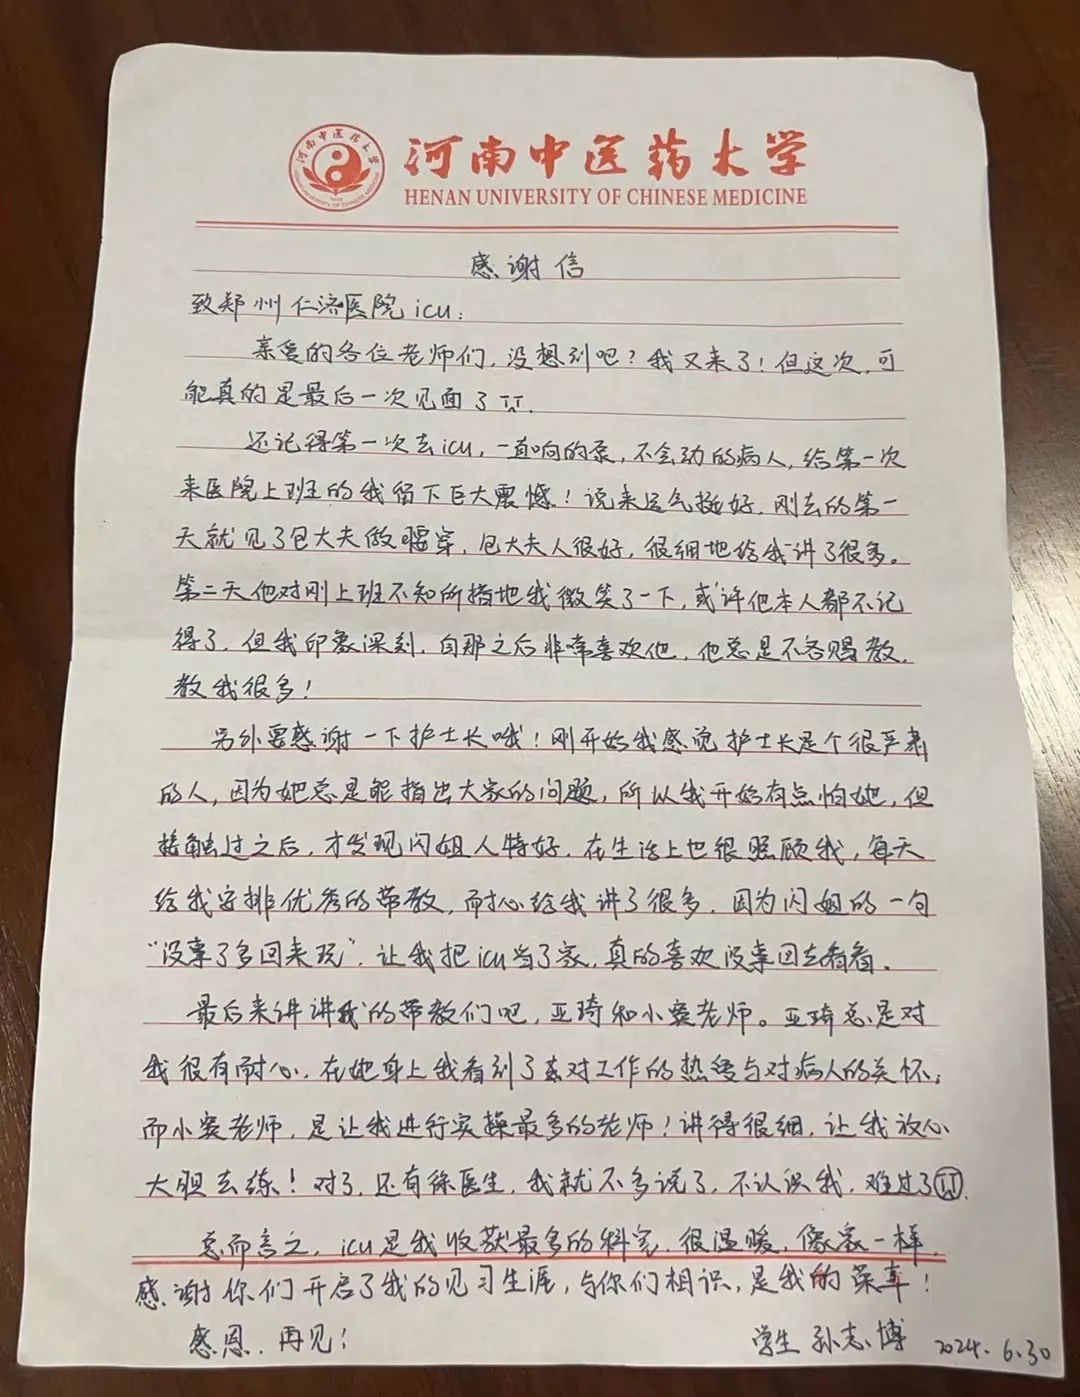 河南中医药大学
HENAN UNIVERSITY OF CHINESE MEDICINE
感谢信
致郑州仁济医院icu：
亲爱的各位老师们，没想到吧？我又来了！但这次，可
能真的是最后一次见面了
还记得第一次去icu，一直响的泵，不会动的病人，给第一次
来医院上班的我留下巨大震憾！说来运气挺好，刚去的第一
天就见了包大夫做腰穿，包大夫人很好，很细地给我讲了很多。
第二天他对刚上班不知所措地我微笑了一下，或许他本人都不记
得了，但我印象深刻，自那之后非常喜欢他，他总是不吝赐教，
教我很多！
另外要感谢一下护士长哦！刚开始我感觉护士长是个很严肃
的人，因为她总是能指出大家的问题，所以我开始有点怕她，但
接触过之后，才发现闪姐人特好，在生活上也很照顾我，每天
给我安排优秀的带教，耐心给我讲了很多，因为闪姐的一句
“没事了多回来玩”，让我把icu当了家，真的喜欢没事回去看看。
最后来讲讲我的带教们吧，亚琦和小窦老师。亚琦总是对
我很有耐心，在她身上我看到了去对工作的热爱与对病人的关怀；
而小窦老师，是让我进行实操最多的老师！讲得很细，让我放心
大胆去练！对了，还有徐医生，我就不多说了，不认识我，难过了
总而言之，icu是我收获最多的科室，很温暖，像家一样，
感谢你们开启了我的见习生涯，与你们相识，是我的荣幸！
感恩，再见！
学生 孙志博 2024.6.30